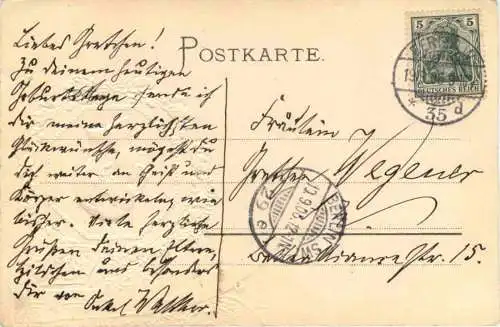 POSTKARTE.
Liebes Gretchen!
Zu Deinem heutigen
Geburtstage sende ich
dir meine herzlichsten
Glückwünsche, mögest du
dich weiter an Geist und
Körper entwickeln wie
bisher. Viele herzliche
Grüßen Deinen Eltern,
und besonders
Dir von Onkel
5
DEUTSCHES REICH
35 d
Fräulein
Gretchen Wegener
BERLIN S.
29 e
Str. 15.